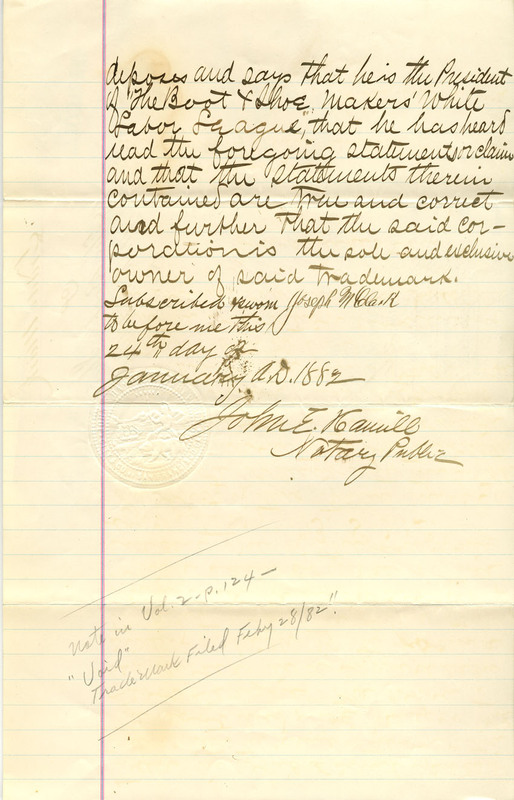 deposes and says that he is the President
of "The Boot & Shoe Makers' White
Labor League", that he has heard
read the foregoing statements or claim
and that the statements therein
contained are true and correct
and further that the said cor-
poration is the sole and exclusive
owner of said trademark.
Subscribed & sworn Joseph
to before me this
24th day of
January A.D. 1882
John E. Hamill
Notary Public
Note in Vol. 2 - p. 124 -
"Void"
Trademark Filed Feby 28/82".